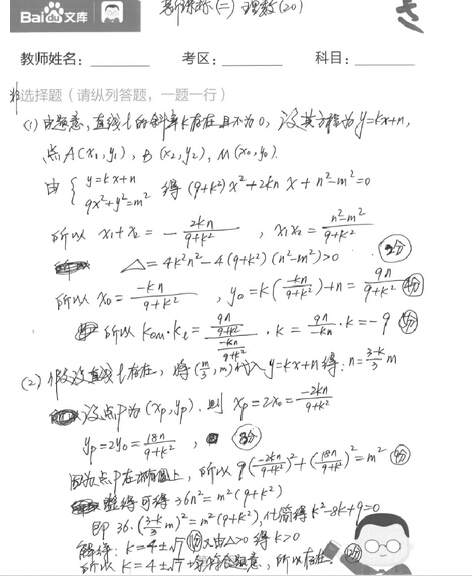 Bai du 文库 新课标(二) 理数(20)
教师姓名: 考区: 科目:
非选择题（请纵列答题，一题一行）
(1) 由题意, 直线l的斜率k存在且不为0, 设其方程为y=kx+n,
点A(x₁,y₁), B(x₂,y₂), M(x₀,y₀).
由 { y=kx+n
9x²+y²=m² 得 (9+k²)x²+2knx+n²-m²=0
所以 x₁+x₂ = -2kn/(9+k²) , x₁x₂ = (n²-m²)/(9+k²)
△=4k²n²-4(9+k²)(n²-m²)>0 2分
所以 x₀ = -kn/(9+k²) , y₀=k(-kn/(9+k²))+n = 9n/(9+k²) 4分
所以 k_OM·k_l = (9n/(9+k²))/(-kn/(9+k²))·k = 9n/-kn·k=-9
(2) 假设直线l存在, 将(m/3,m)代入y=kx+n得: n=(3-k)/3 m
设点P为(xp,yp). 则 xp=2x₀=-2kn/(9+k²)
yp=2y₀=18n/(9+k²) ,
因为点P在椭圆上, 所以 9(-2kn/(9+k²))²+(18n/(9+k²))²=m²
整理可得 36n²=m²(9+k²)
即 36·((3-k)/3 m)²=m²(9+k²), 化简得 k²-8k+9=0
解得: k=4±√7 又由△>0得 k>0
所以 k=4±√7 均符合题意, 所以存在. 12分